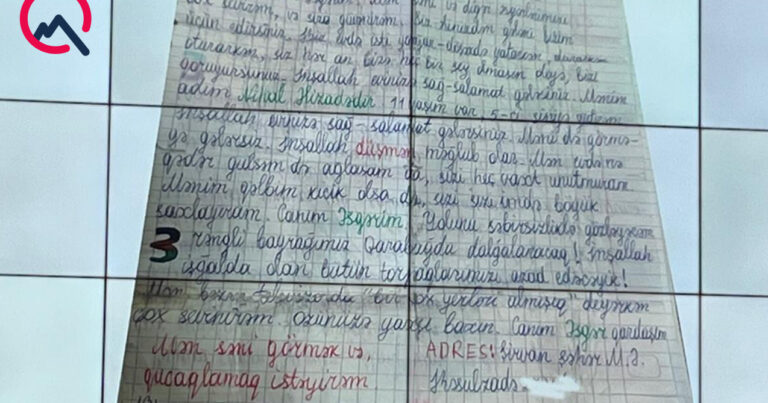 sevirəm, və sizə güvənirəm. Siz
üçün edirsiniz. Biz evdə isti yorğan-döşəkdə yatarkən,
otararkən, siz hər an bizə heç bir şey olmasın deyə, bizi
qoruyursunuz. İnşallah evinizə sağ-salamat gələrsiniz. Mənim
adım Nihal 11 yaşım var, 5-ci sinifə gedirəm
İnşallah evinizə sağ-salamat gələrsiniz. Məni də görmə-
yə gələrsiz. İnşallah düşmən məğlub olar. Mən evdə nə
qədər gülsəm də ağlasam da, sizi heç vaxt unutmuram
Mənim qəlbim kiçik olsa da, sizi böyük
saxlayıram. Canım Əsgərim, Yolunu səbirsizliklə gözləyirəm
3 rəngli bayrağımız Qarabağda dalğalanacaq! İnşallah
işğalda olan bütün torpaqlarımızı azad edəcəyik!
Mən bəzən televizorda "bir çox yerləri almışıq" deyirkən
çox sevinirəm. Özünüzə yaxşı baxın. Canım Əsgər qardaşım
Mən səni görmək və, ADRES: Şirvan şəhər M.Ə.
qucaqlamaq istəyirəm Rəsulzadə